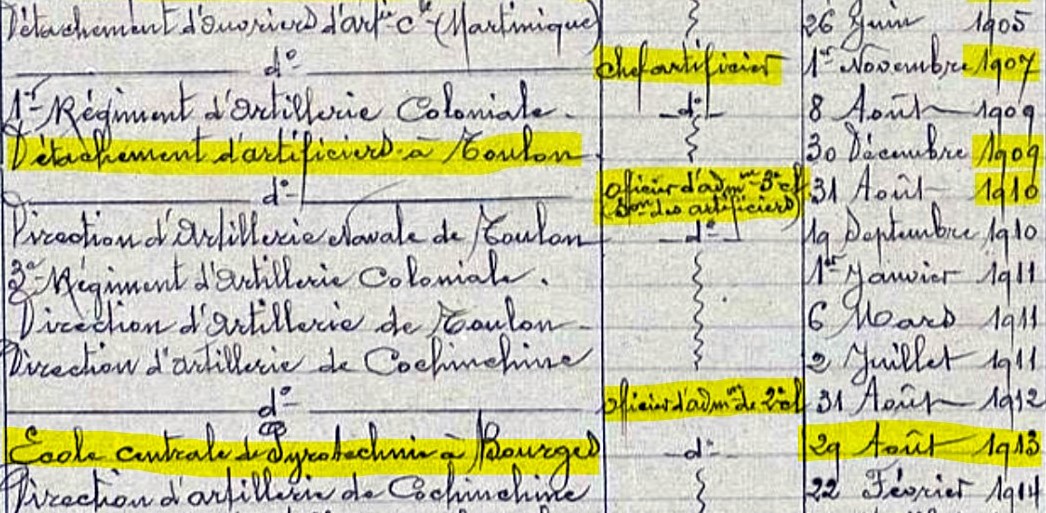 Détachement d'ouvriers d'art^ie C^le (Martinique) 26 Juin 1905
d° chef artificier 1^er Novembre 1907
1^er Régiment d'Artillerie Coloniale. d° 8 Août 1909
Détachement d'artificiers à Toulon 30 Décembre 1909
d° officier d'adm^on 3^e cl 31 Août 1910
(S^on des artificiers)
Direction d'Artillerie Navale de Toulon d° 19 Septembre 1910
3^e Régiment d'Artillerie Coloniale. 1^er Janvier 1911
Direction d'Artillerie de Toulon 6 Mars 1911
Direction d'artillerie de Cochinchine 2 Juillet 1911
d° officier d'adm^on de 2^e cl 31 Août 1912
Ecole centrale de Pyrotechnie à Bourges d° 29 Août 1913
Direction d'artillerie de Cochinchine 22 Février 1914